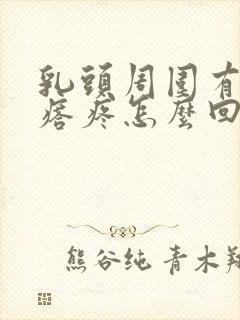 乳頭周圍有
痞疼怎麼回
熊谷纯 青木翔